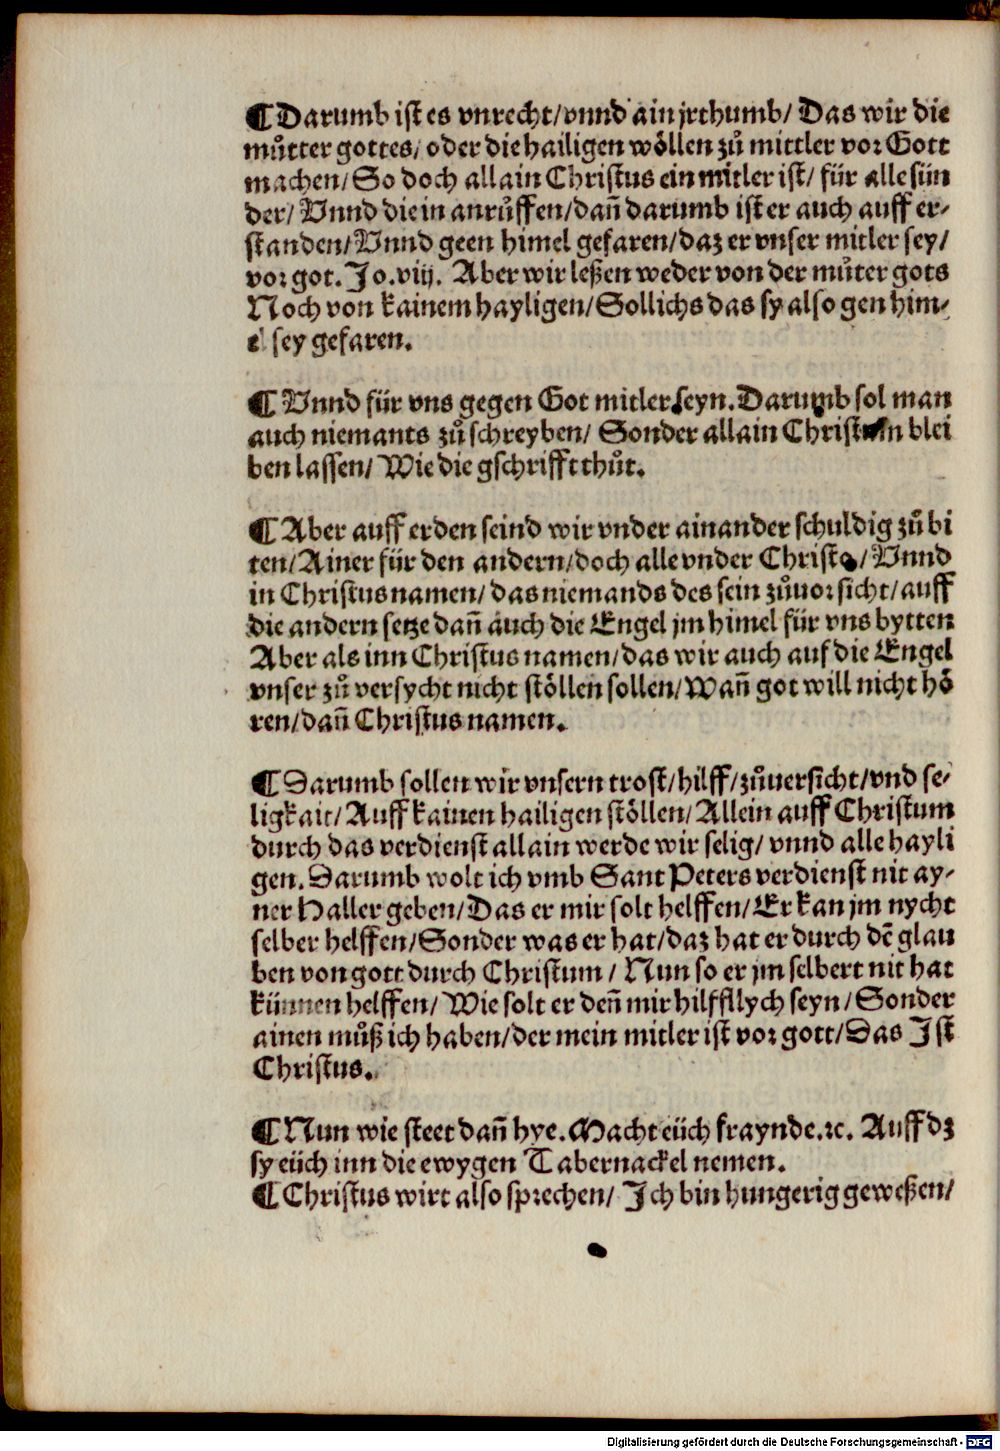 ¶ Darumb ist es vnrecht/vnnd ain jrthumb/ Das wir die
můtter gottes/ oder die hailigen wöllen zů mittler vor Gott
machen/ So doch allain Christus ein mitler ist/ für alle sün
der/ Vnnd die in anrůffen/dañ darumb ist er auch auff er-
standen/Vnnd geen himel gefaren/daz er vnser mitler sey/
vor got. Jo. viij. Aber wir leßen weder von der můter gots
Noch von kainem hayligen/Sollichs das sy also gen him-
el sey gefaren.
¶ Vnnd für vns gegen Got mitler seyn. Darumb sol man
auch niemants zů schreyben/ Sonder allain Christum blei
ben lassen/ Wie die gschrifft thůt.
¶ Aber auff erden seind wir vnder ainander schuldig zů bi
ten/Ainer für den andern/doch alle vnder Christo/Vnnd
in Christus namen/ das niemands des sein zůuorsicht/auff
die andern setze dañ auch die Engel jm himel für vns bytten
Aber als inn Christus namen/das wir auch auf die Engel
vnser zů versycht nicht stöllen sollen/Wañ got will nicht hö
ren/dañ Christus namen.
¶ Darumb sollen wir vnsern trost/hilff/zůuersicht/vnd se-
ligkait/Auff kainen hailigen stöllen/Allein auff Christum
durch das verdienst allain werde wir selig/ vnnd alle hayli
gen. Darumb wolt ich vmb Sant Peters verdienst nit ay-
ner Haller geben/Das er mir solt helffen/Er kan jm nycht
selber helffen/Sonder was er hat/daz hat er durch dē glau
ben von gott durch Christum/ Nun so er jm selbert nit hat
künnen helffen/ Wie solt er deñ mir hilffllych seyn/Sonder
ainen můß ich haben/der mein mitler ist vor gott/Das Jst
Christus.
¶ Nun wie steet dañ hye. Macht eüch fraynde.ꝛc. Auff dz
sy eüch inn die ewygen Tabernackel nemen.
¶ Christus wirt also sprechen/ Jch bin hungerig geweßen/
Digitalisierung gefördert durch die Deutsche Forschungsgemeinschaft - DFG